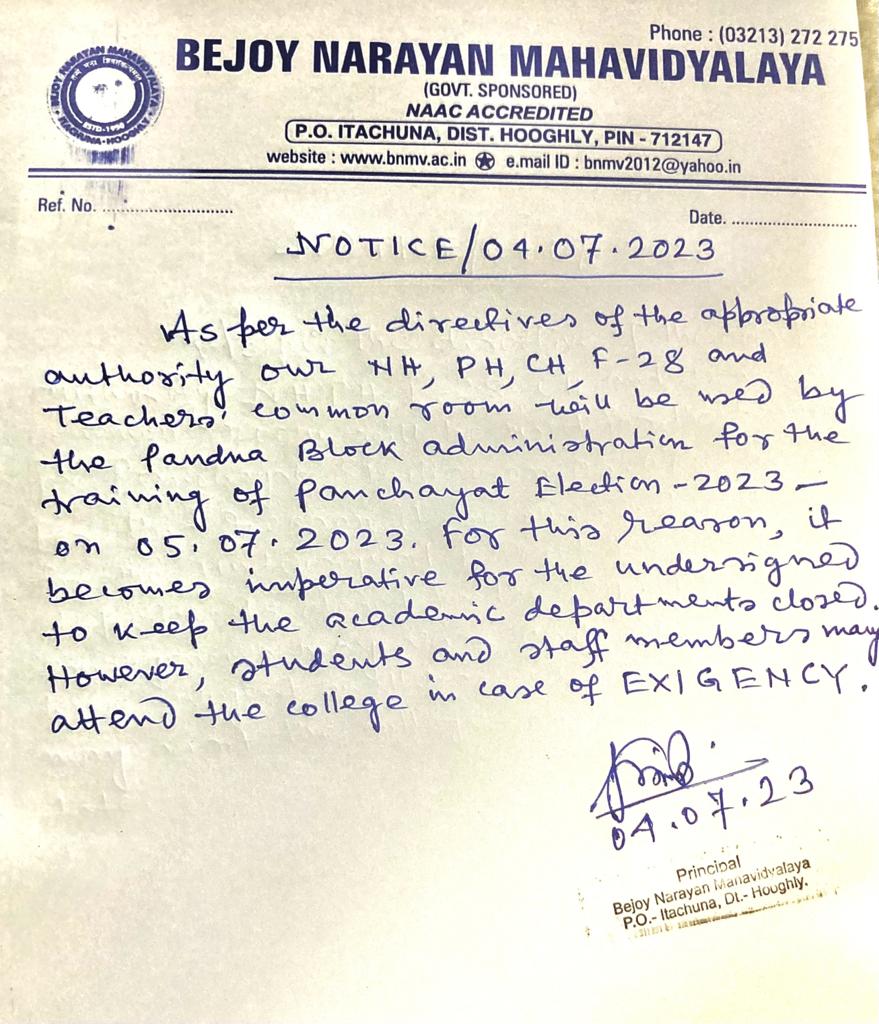 Phone : (03213) 272 275
BEJOY NARAYAN MAHAVIDYALAYA
(GOVT. SPONSORED)
NAAC ACCREDITED
P.O. ITACHUNA, DIST. HOOGHLY, PIN - 712147
website : www.bnmv.ac.in e.mail ID : bnmv2012@yahoo.in
BEJOY NARAYAN MAHAVIDYALAYA
ESTD-1950
ITACHUNA-HOOGHLY
Ref. No. ..............................
Date. ..............................
NOTICE/04.07.2023
As per the directives of the appropriate
authority our NH, PH, CH, F-28 and
Teachers' common room will be used by
the Pandua Block administration for the
training of Panchayat Election-2023 –
on 05.07.2023. For this reason, it
becomes imperative for the undersigned
to keep the academic departments closed.
However, students and staff members may
attend the college in case of EXIGENCY.
04.07.23
Principal
Bejoy Narayan Mahavidyalaya
P.O.- Itachuna, Dt.- Hooghly.